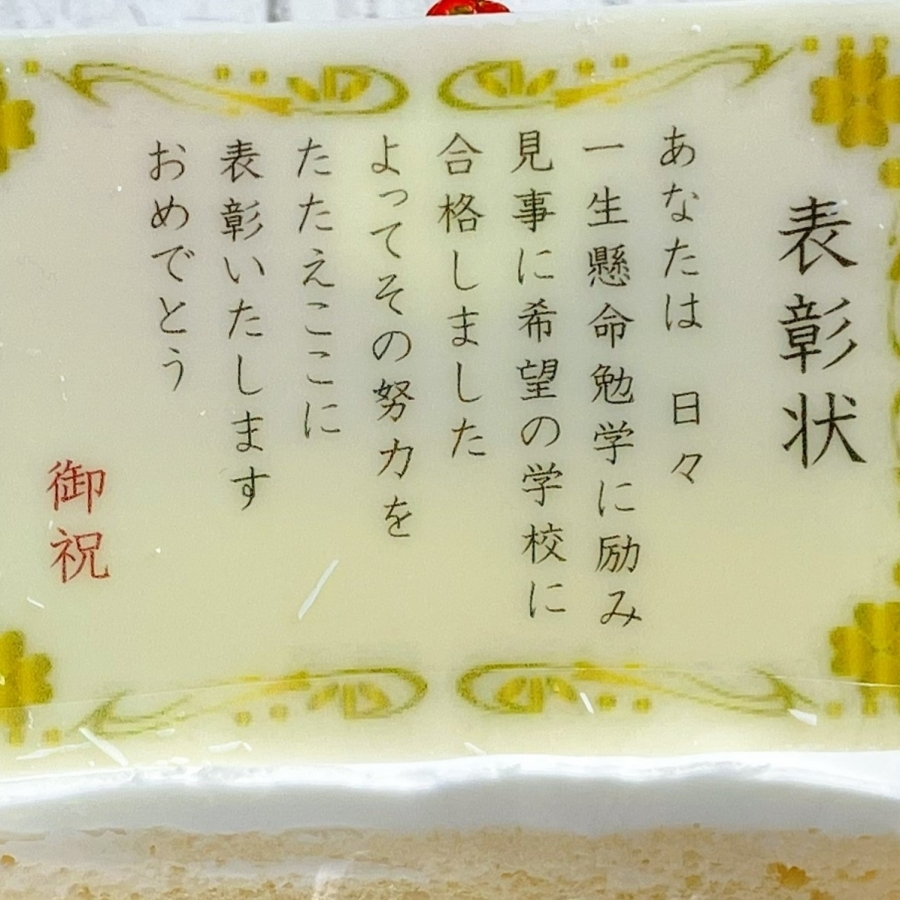 表彰状
あなたは　日々
一生懸命勉学に励み
見事に希望の学校に
合格しました
よってその努力を
たたえここに
表彰いたします
おめでとう
御祝